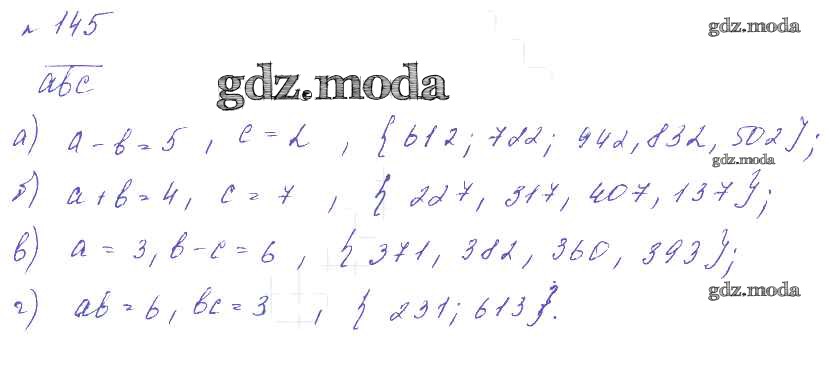 № 145
gdz.moda
abc
gdz.moda
а) a - b = 5, c = 2, {612; 722; 942, 832, 502};
gdz.moda
б) a + b = 4, c = 7, {227, 317, 407, 137};
в) a = 3, b - c = 6, {371, 382, 360, 393};
gdz.moda
г) ab = 6, bc = 3, {231; 613}.